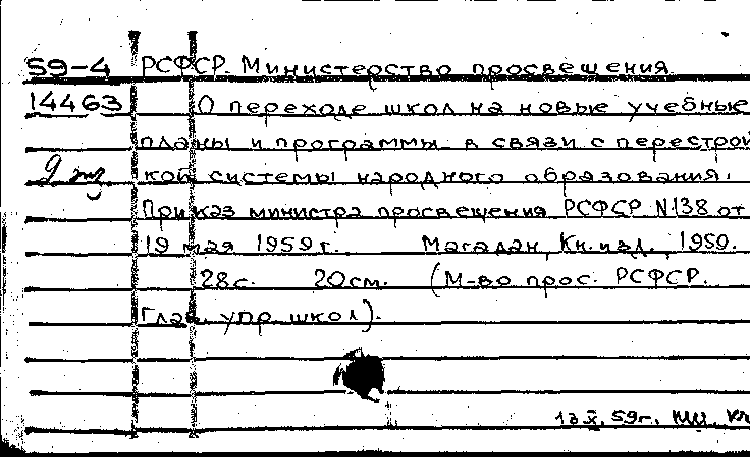 59-4 РСФСР. Министерство просвещения
14463 О переходе школ на новые учебные
планы и программы в связи с перестрой
кой системы народного образования.
Приказ министра просвещения РСФСР N138 от
19 мая 1959г. Магадан, Кн.изд., 1959.
28с. 20см. (М-во прос. РСФСР.
Глав. упр. школ).
59г.